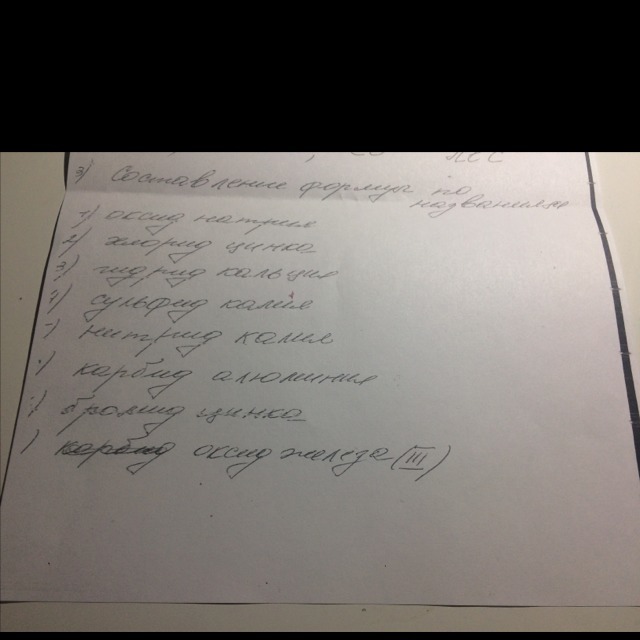 3) Составление формул по
названиям
1) оксид натрия
2) хлорид цинка
3) гидрид кальция
4) сульфид калия
) нитрид калия
) карбид алюминия
) бромид цинка
) оксид железа (III)